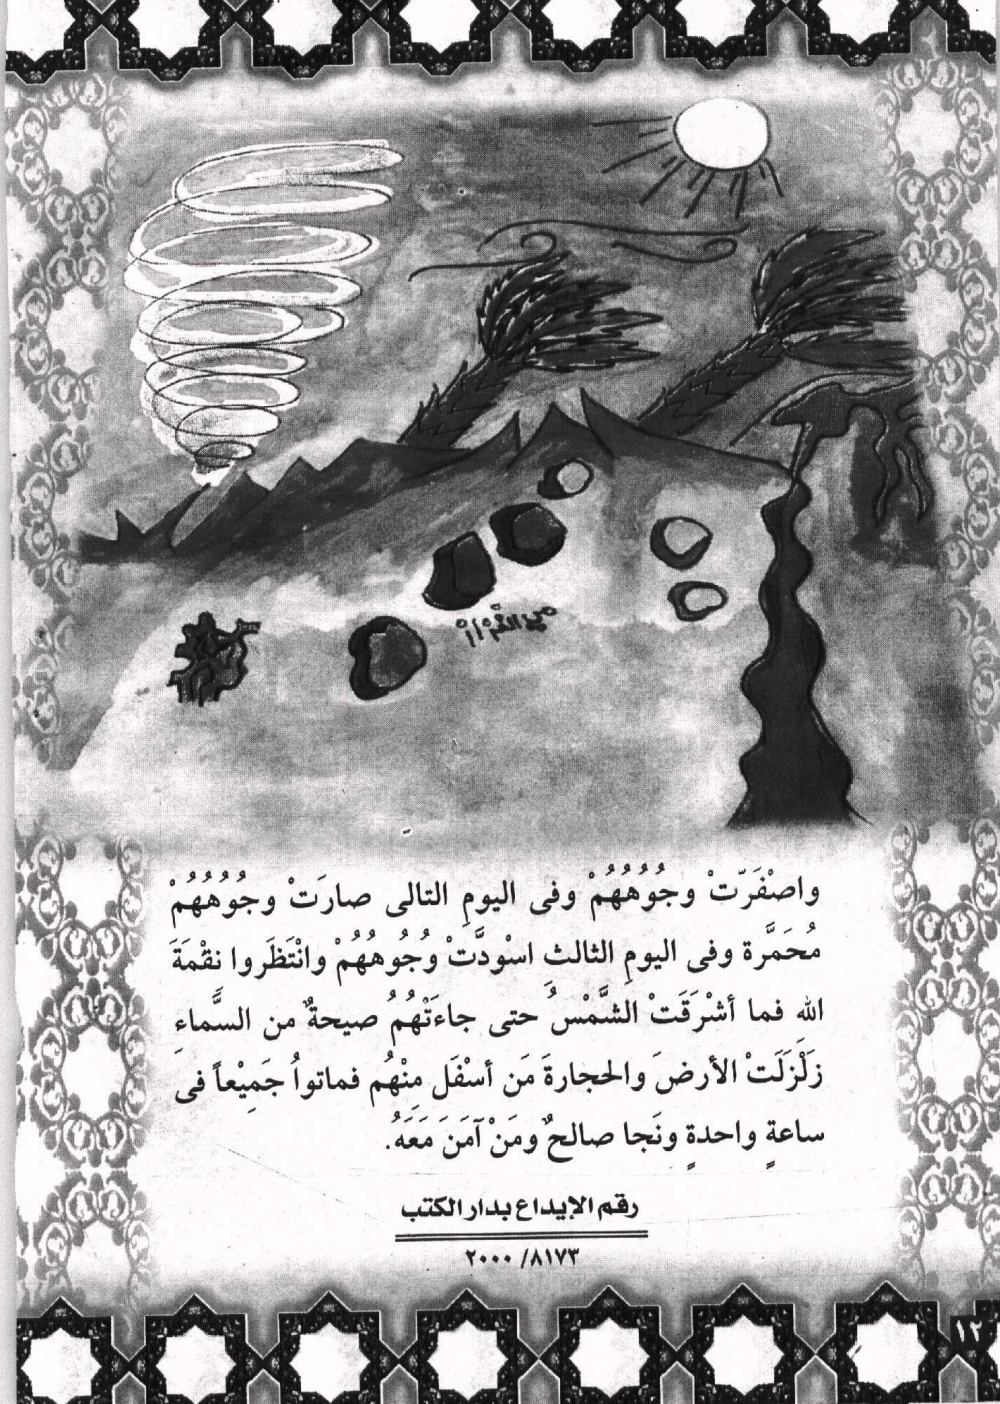 واصْفَرّتْ وجُوُهُهُمْ وفى اليومِ التالى صارَتْ وجُوُهُهُمْ
مُحَمَّرة وفى اليومِ الثالثِ اسْودَّتْ وُجُوهُهُمْ وانْتَظَروا نِقْمَةَ
اللهِ فما أشْرَقَتْ الشَّمْسُ حتى جاءَتْهُمُ صيحةٌ من السَّماءِ
زَلْزَلَتْ الأرضَ والحجارةَ مَن أسْفَل مِنْهُم فماتواُ جَمِيْعاً فى
ساعةٍ واحدةٍ ونَجا صالحٌ ومَنْ آمَنَ مَعَهُ.
رقم الإيداع بدار الكتب
٨١٧٣/ ٢٠٠٠
١٢